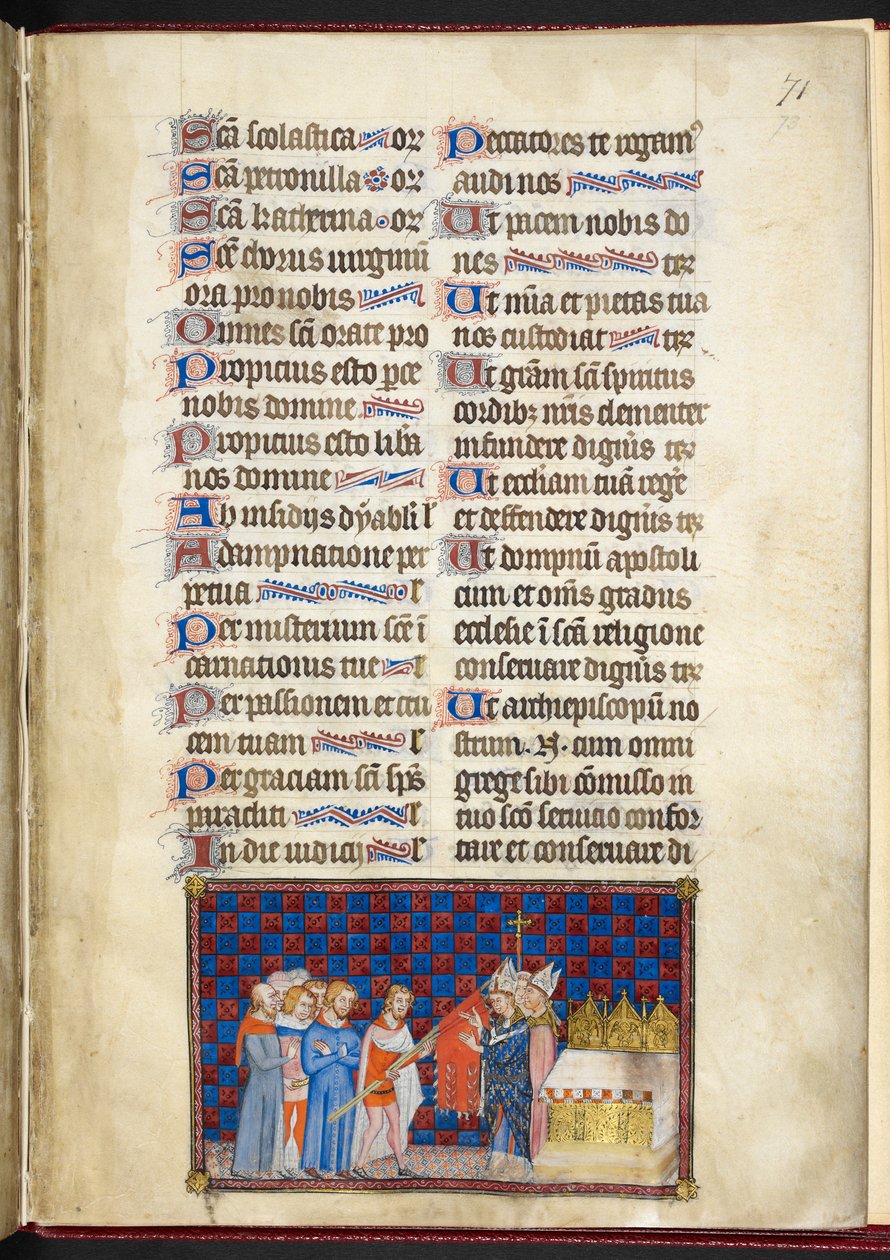 71
73
Scā scolastica or
Scā petronilla or
Scā katherina or
Scē chorus uirginū
ora pro nobis
Omnes scī orate pro
Propicius esto pce
nobis domine
Propicius esto liba
nos domine
Ab insidijs dyabli l
A dampnatione per
petua l
Per misterium scē ī
carnationis tue l
Per passionem et cru
cem tuam l
Per graciam scī sps
paracliti l
In die iudicij l
Peccatores te rogam⁹
audi nos
Ut pacem nobis do
nes ter
Ut mīa et pietas tua
nos custodiat ter
Ut grām scī spiritus
cordibz nris clementer
infundere digneris ter
Ut eccliam tuā rege
et deffendere digneris ter
Ut dompnū apostoli
cum et oms gradus
ecclesie ī scā religione
conseruare digneris ter
Ut archiepiscopū no
strum. N. cum omni
grege sibi cōmisso in
tuo scō seruicio confor
tare et conseruare di